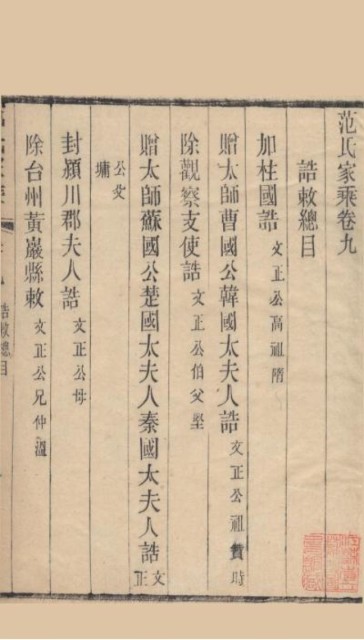 范氏家乘卷九
誥敕總目
加柱國誥 文正公高祖隋
贈太師曹國公韓國太夫人誥 文正公祖贊時
除觀察支使誥 文正公伯父堅
贈太師蘇國公楚國太夫人秦國太夫人誥 文正
公父墉
封潁川郡夫人誥 文正公母
除台州黃巖縣敕 文正公兄仲溫
誥敕總目